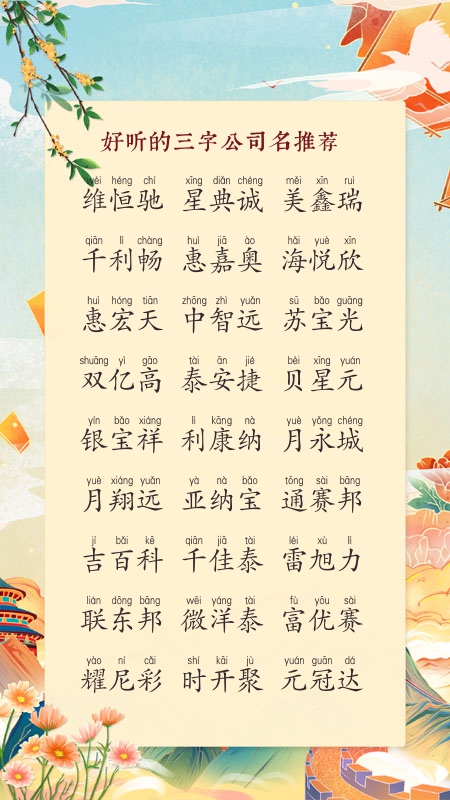 好听的三字公司名推荐
wéi héng chí xīng diǎn chéng měi xīn ruì
维恒驰 星典诚 美鑫瑞
qiān lì chàng huì jiā ào hǎi yuè xīn
千利畅 惠嘉奥 海悦欣
huì hóng tiān zhōng zhì yuǎn sū bǎo guāng
惠宏天 中智远 苏宝光
shuāng yì gāo tài ān jié bèi xīng yuán
双亿高 泰安捷 贝星元
yín bǎo xiáng lì kāng nà yuè yǒng chéng
银宝祥 利康纳 月永城
yuè xiáng yuǎn yà nà bǎo tōng sài bāng
月翔远 亚纳宝 通赛邦
jí bǎi kē qiān jiā tài léi xù lì
吉百科 千佳泰 雷旭力
lián dōng bāng wēi yáng tài fù yōu sài
联东邦 微洋泰 富优赛
yào ní cǎi shí kāi jù yuán guān dá
耀尼彩 时开聚 元冠达